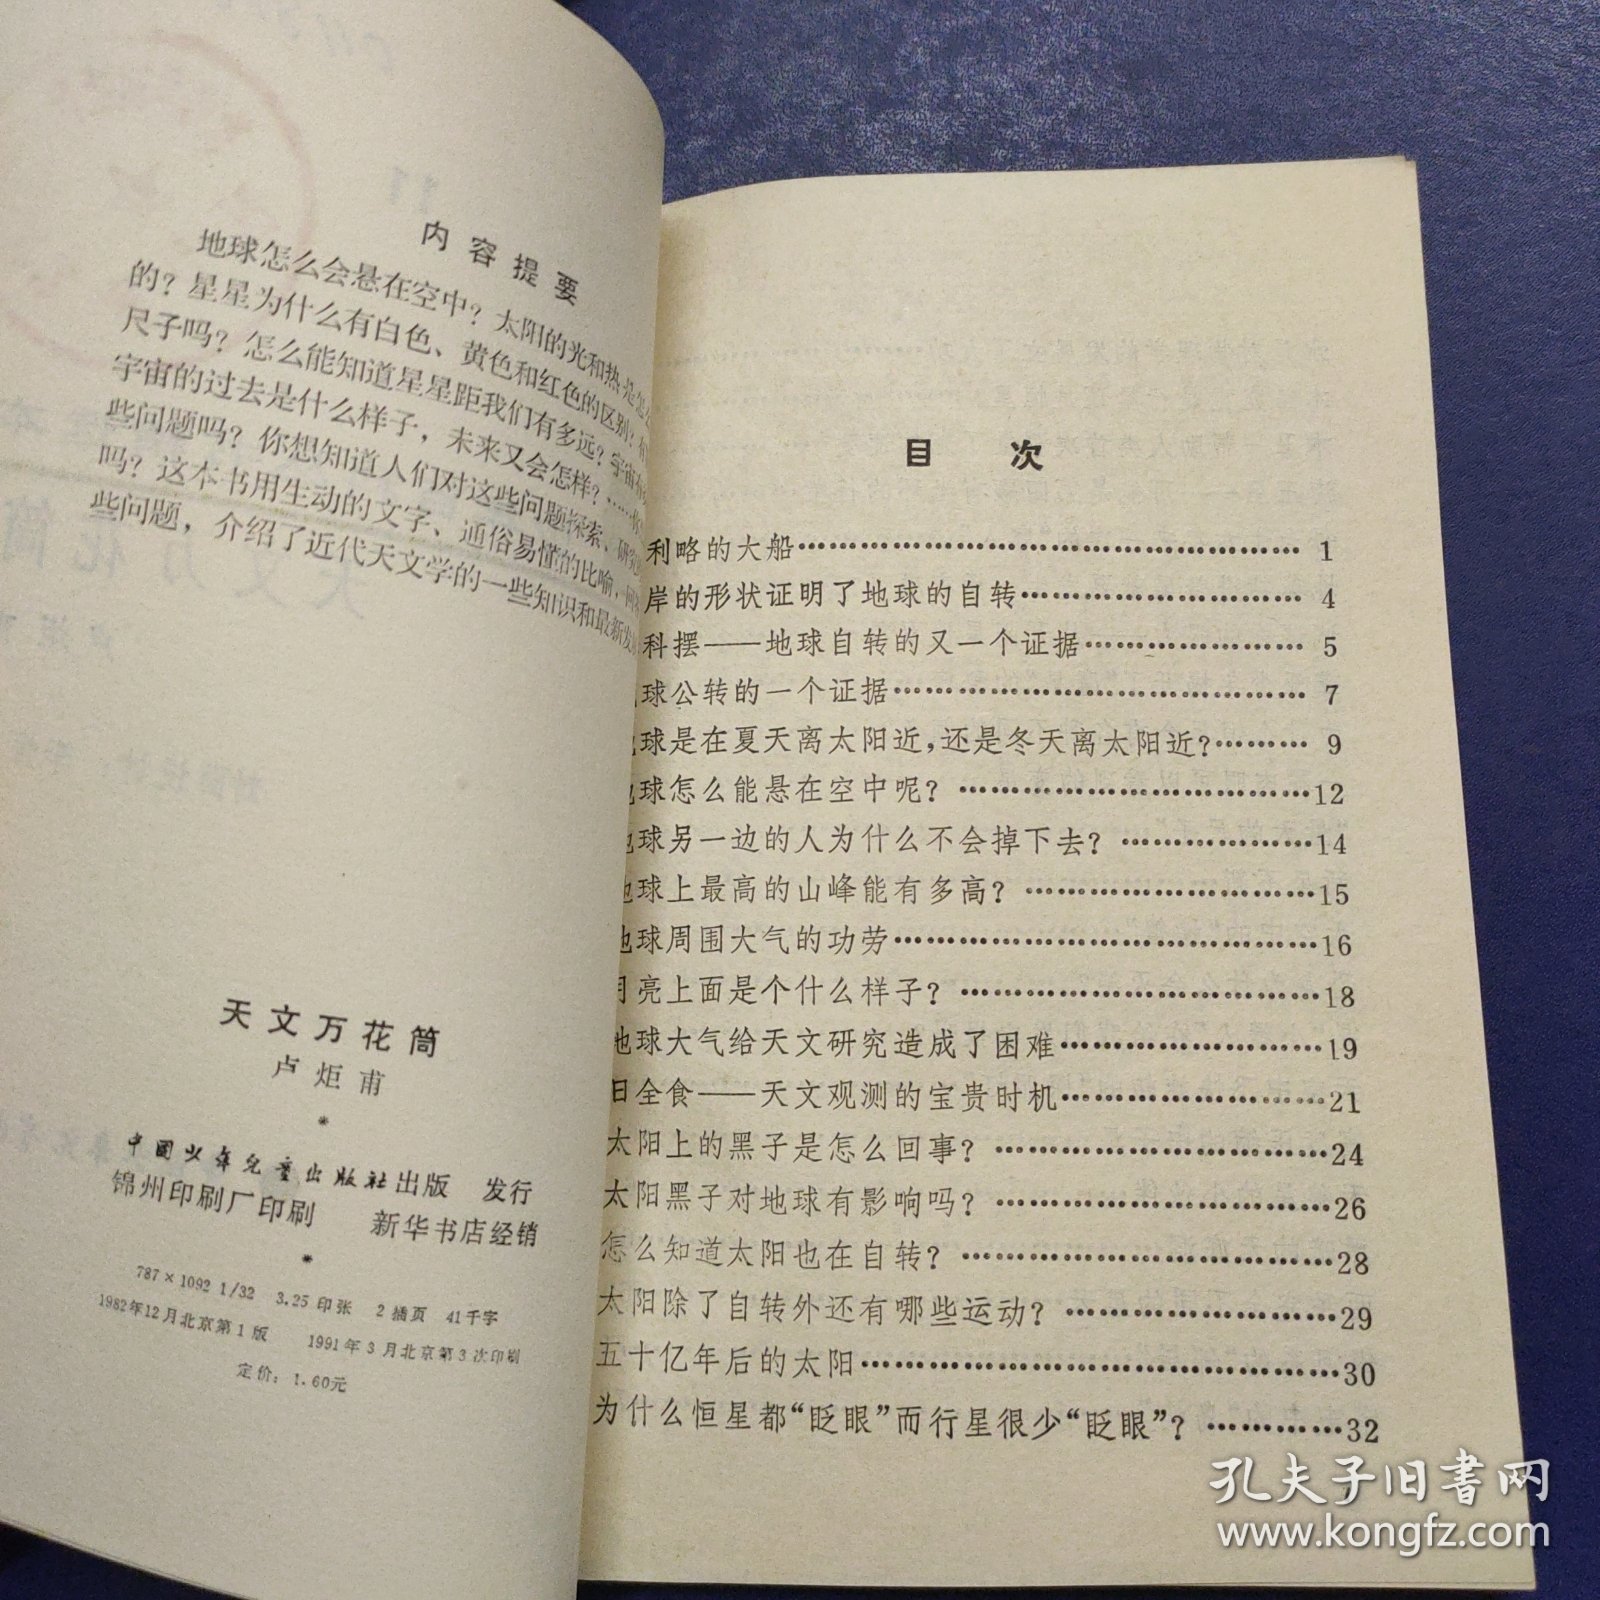 内容提要
地球怎么会悬在空中？太阳的光和热是怎么
的？星星为什么有白色、黄色和红色的区别？
尺子吗？怎么能知道星星距我们有多远？宇宙有
宇宙的过去是什么样子，未来又会怎样？……
些问题吗？你想知道人们对这些问题探索、研究
吗？这本书用生动的文字、通俗易懂的比喻，
些问题，介绍了近代天文学的一些知识和最新发
天文万花筒
卢炬甫
*
中国少年儿童出版社出版 发行
锦州印刷厂印刷 新华书店经销
*
787×1092 1/32 3.25印张 2插页 41千字
1982年12月北京第1版 1991年3月北京第3次印刷
定价：1.60元
目 次
利略的大船…………………………………………1
岸的形状证明了地球的自转………………………4
科摆——地球自转的又一个证据…………………5
球公转的一个证据…………………………………7
地球是在夏天离太阳近，还是冬天离太阳近？………9
地球怎么能悬在空中呢？……………………………12
地球另一边的人为什么不会掉下去？………………14
地球上最高的山峰能有多高？………………………15
地球周围大气的功劳…………………………………16
月亮上面是个什么样子？……………………………18
地球大气给天文研究造成了困难……………………19
日全食——天文观测的宝贵时机……………………21
太阳上的黑子是怎么回事？…………………………24
太阳黑子对地球有影响吗？…………………………26
怎么知道太阳也在自转？……………………………28
太阳除了自转外还有哪些运动？……………………29
五十亿年后的太阳……………………………………30
为什么恒星都“眨眼”而行星很少“眨眼”？…………32
孔夫子旧书网
www.kongfz.com